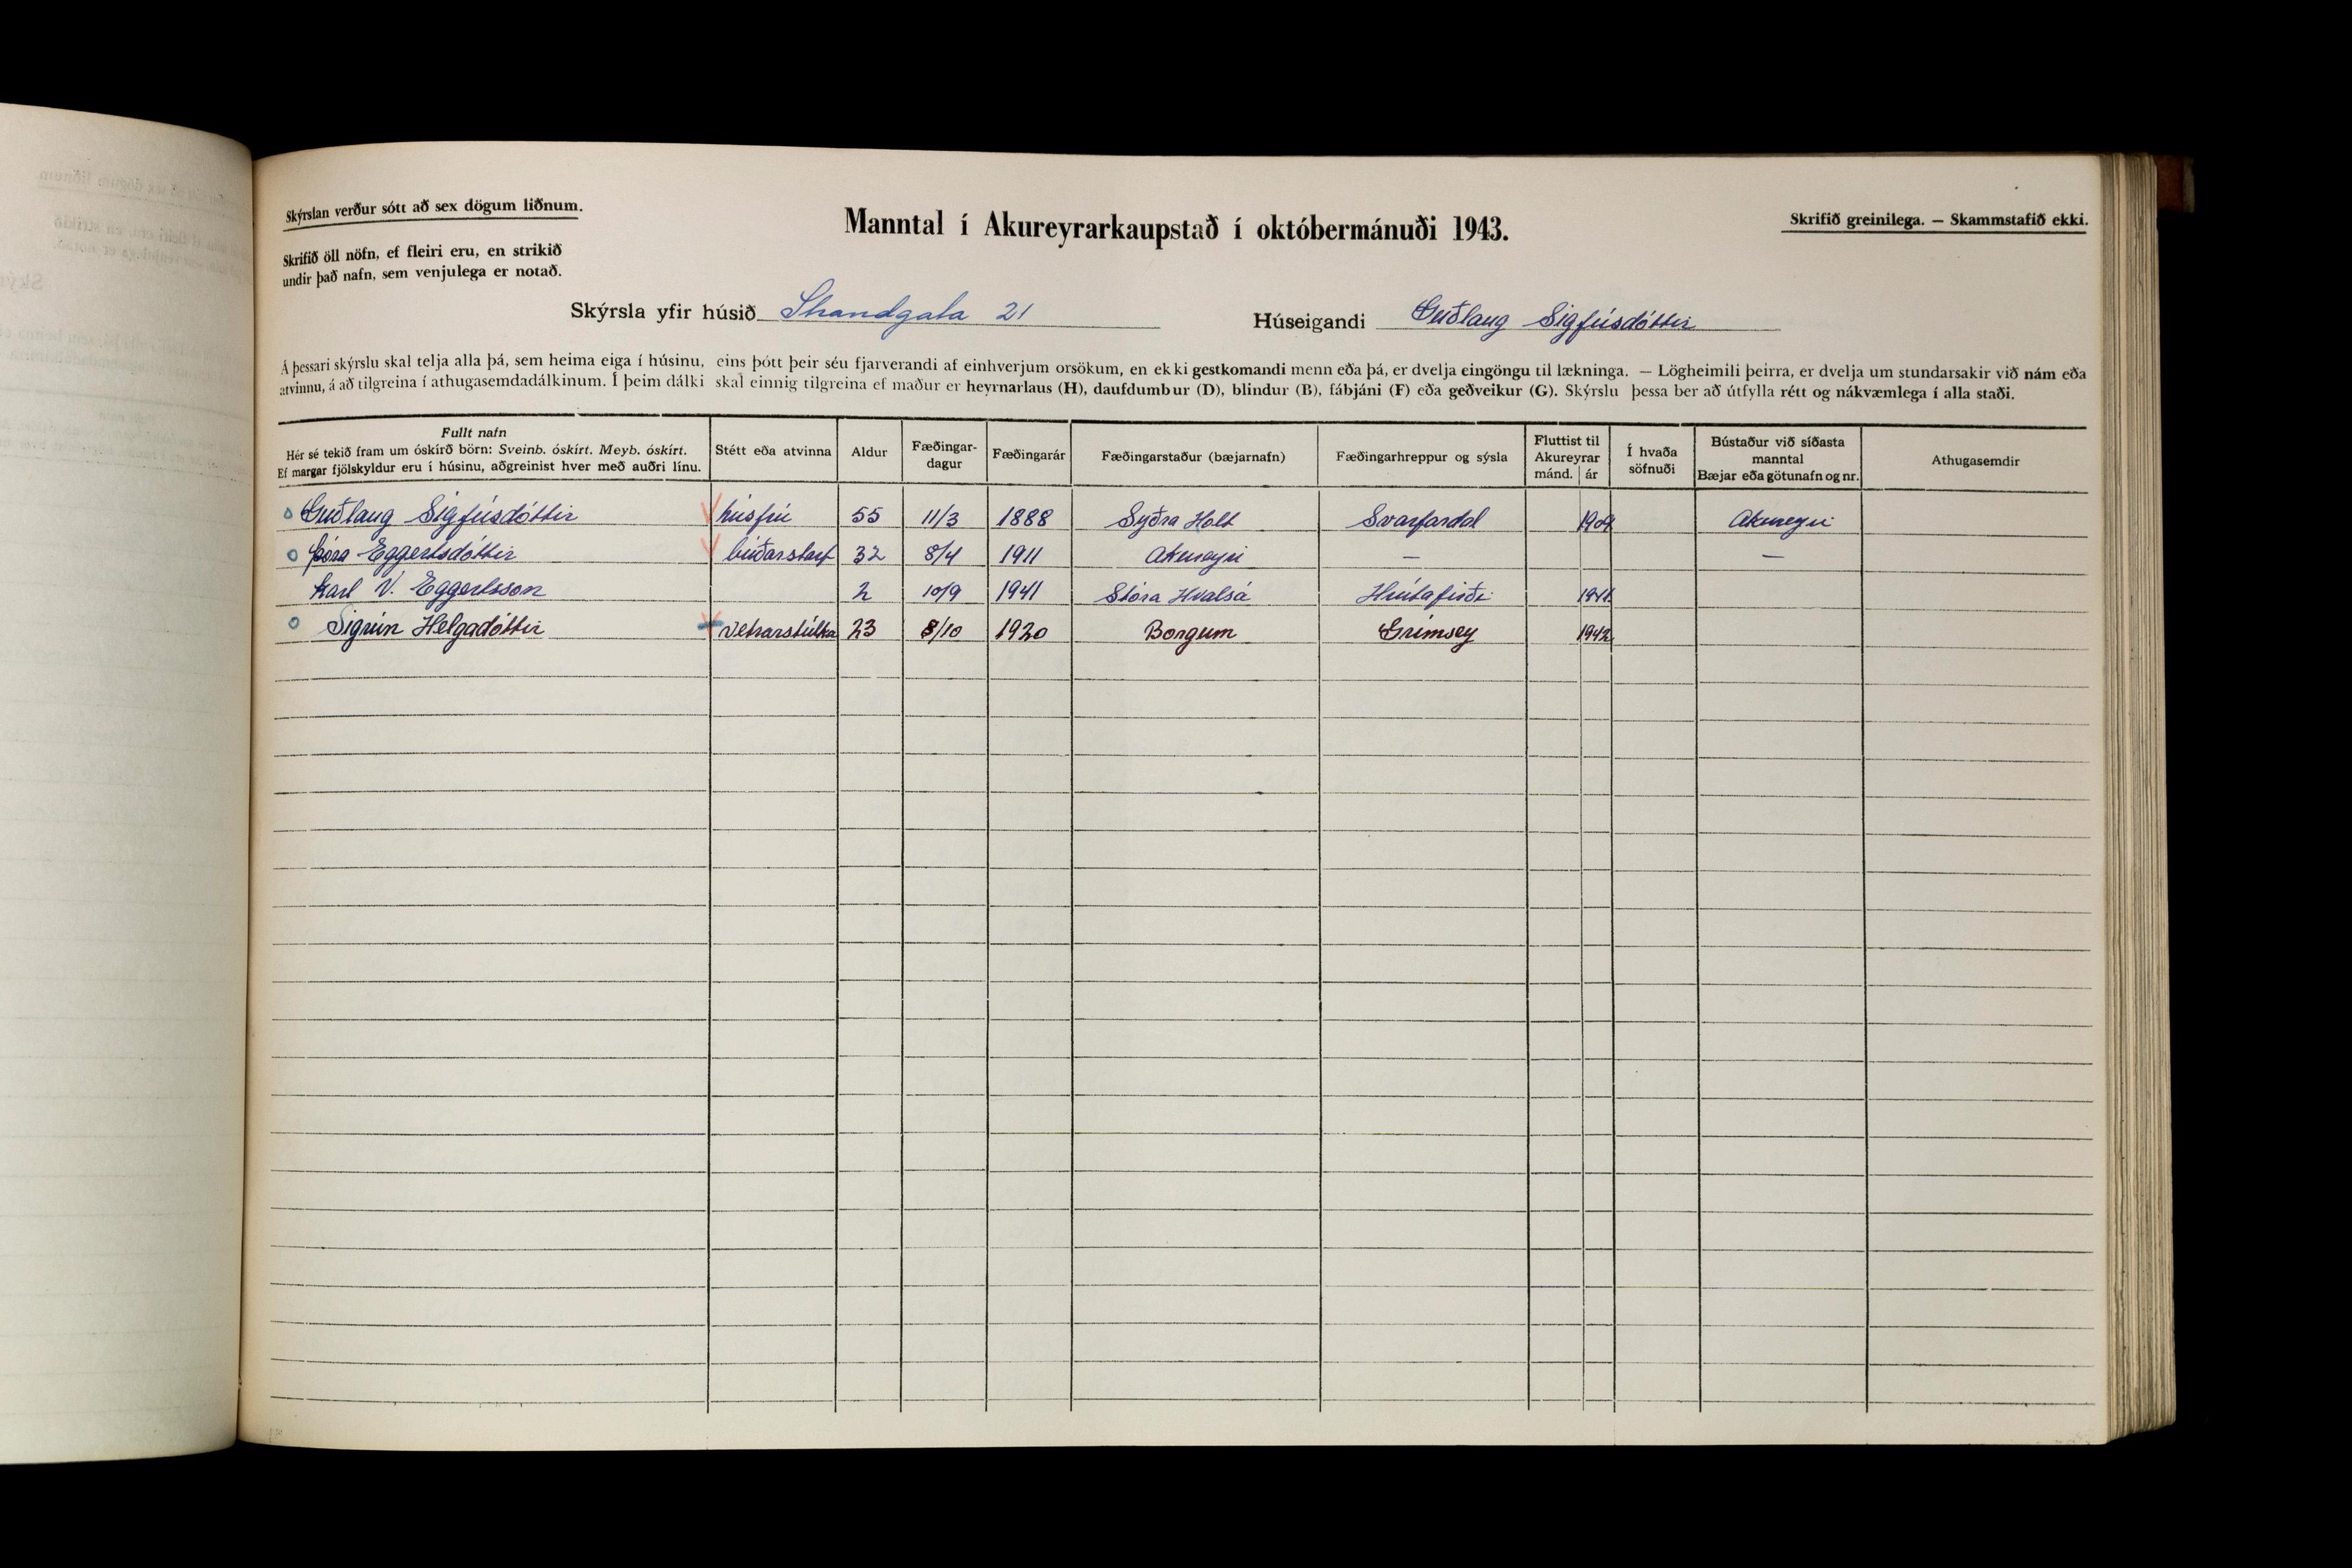 Skýrslan verður sótt að sex dögum liðnum.
Manntal í Akureyrarkaupstað í októbermánuði 1943.
Skrifið greinilega. — Skammstafið ekki.
Skrifið öll nöfn, ef fleiri eru, en strikið
undir það nafn, sem venjulega er notað.
Skýrsla yfir húsið Strandgata 21 Húseigandi Guðlaug Sigfúsdóttir
Á þessari skýrslu skal telja alla þá, sem heima eiga í húsinu, eins þótt þeir séu fjarverandi af einhverjum orsökum, en ekki gestkomandi menn eða þá, er dvelja eingöngu til lækninga. — Lögheimili þeirra, er dvelja um stundarsakir við nám eða
atvinnu, á að tilgreina í athugasemdadálkinum. Í þeim dálki skal einnig tilgreina ef maður er heyrnarlaus (H), daufdumbur (D), blindur (B), fábjáni (F) eða geðveikur (G). Skýrslu þessa ber að útfylla rétt og nákvæmlega í alla staði.
Fullt nafn
Hér sé tekið fram um óskírð börn: Sveinb. óskírt. Meyb. óskírt.
Ef margar fjölskyldur eru í húsinu, aðgreinist hver með auðri línu.
Stétt eða atvinna
Aldur
Fæðingar-
dagur
Fæðingarár
Fæðingarstaður (bæjarnafn)
Fæðingarhreppur og sýsla
Fluttist til
Akureyrar
mánd. ár
Í hvaða
söfnuði
Bústaður við síðasta
manntal
Bæjar eða götunafn og nr.
Athugasemdir
Guðlaug Sigfúsdóttir húsfrú 55 11/3 1888 Syðra Holt Svarfardal 1909 Akureyri
Þóra Eggertsdóttir búðarstarf 32 8/4 1911 Akureyri — —
Karl V. Eggertsson 2 10/9 1941 Stóra Hvalsá Hrútafirði 1941
Sigrún Helgadóttir vetrarstúlka 23 8/10 1920 Borgum Grímsey 1942